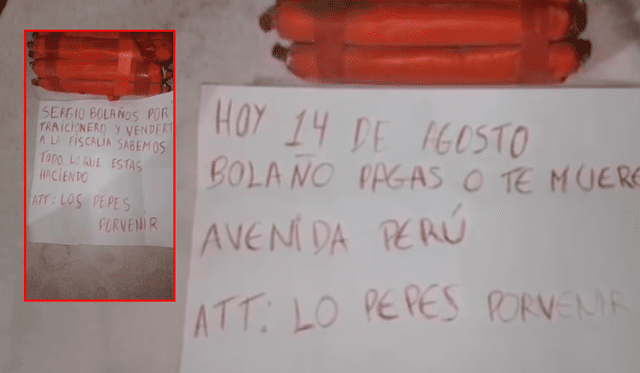 SERGIO BOLAÑOS POR
TRAICIONERO Y VENDERT
A LA FISCALIA SABEMOS
TODO LO QUE ESTAS
HACIENDO
ATT: LOS PEPES
PORVENIR
HOY 14 DE AGOSTO
BOLAÑO PAGAS O TE MUERE
AVENIDA PERÚ
ATT: LO PEPES PORVENIR